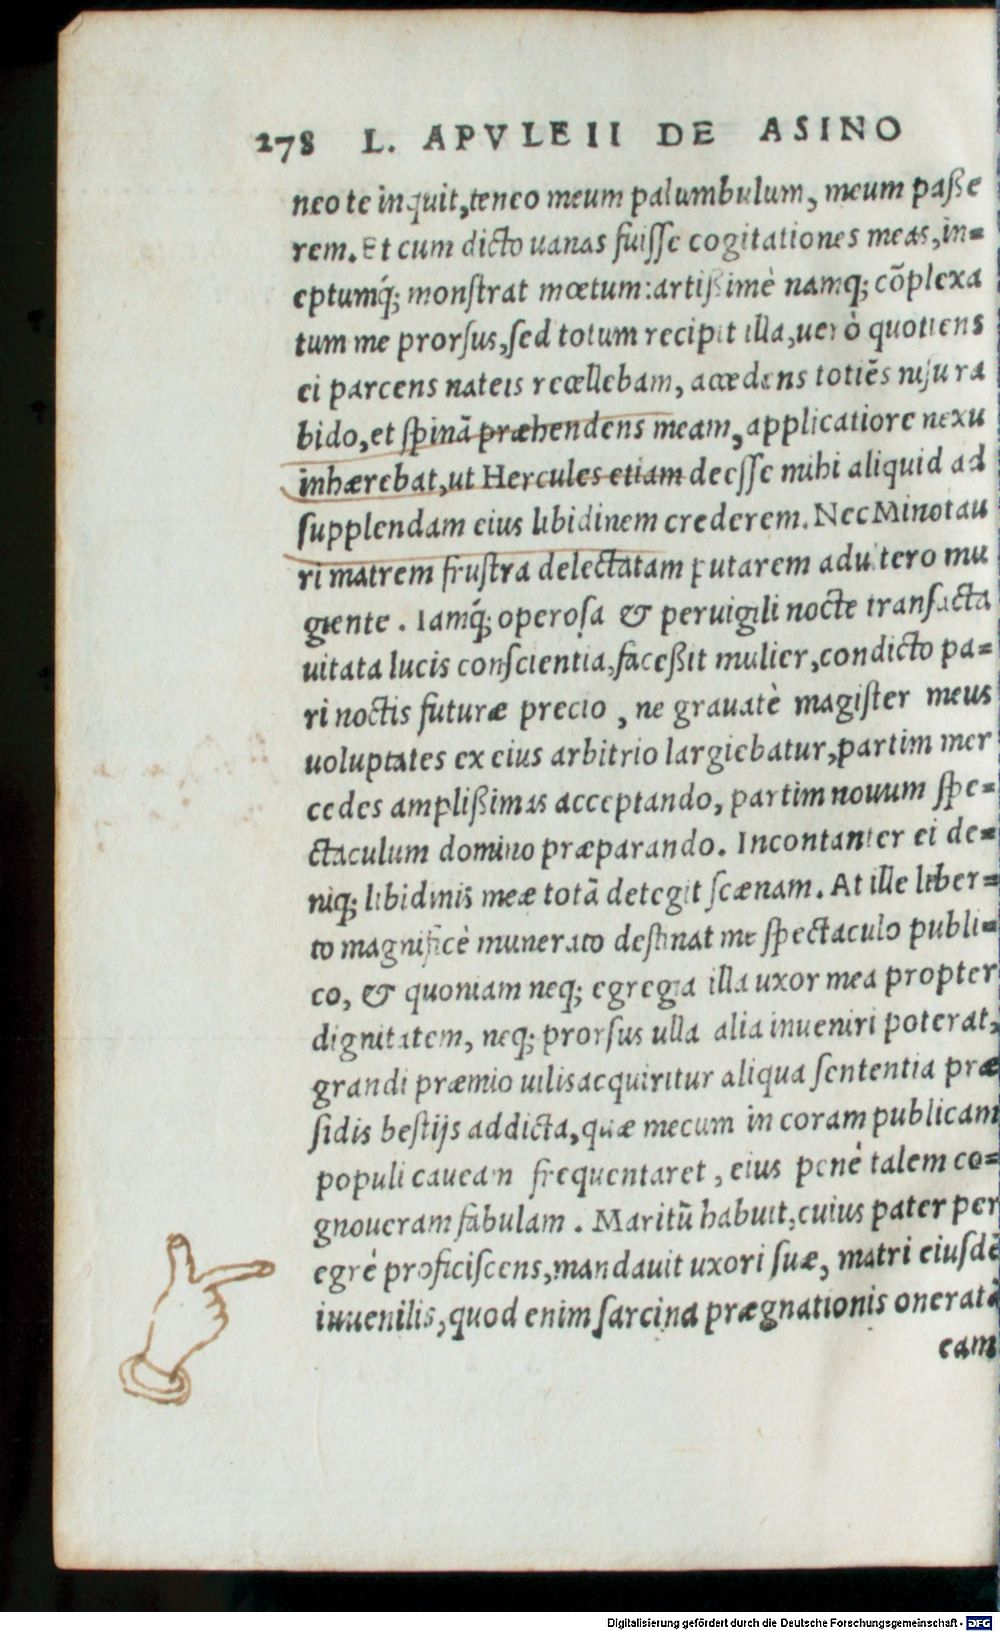 278 L. APVLEII DE ASINO
neo te inquit,teneo meum palumbulum, meum paße
rem. Et cum dicto uanas fuiſſe cogitationes meas,in=
eptumq́; monſtrat mœtum:artißimè namq; cõplexa
tum me prorſus,ſed totum recipit illa,uerò quotiens
ei parcens nateis recellebam, accedens totiẽs niſu ra
bido,et ſpinã præhendens meam, applicatiore nexu
inhærebat,ut Hercules etiam deeſſe mihi aliquid ad
ſupplendam eius libidinem crederem. Nec Minotau
ri matrem fruſtra delectatam putarem adultero mu
giente. Iamq́; operoſa & peruigili nocte tranſacta
uitata lucis conſcientia,faceßit mulier,condicto pa=
ri noctis futuræ precio , ne grauatè magiſter meus
uoluptates ex eius arbitrio largiebatur,partim mer
cedes amplißimas acceptando, partim nouum ſpe=
ctaculum domino præparando. Incontanter ei de=
niq; libidinis meæ totã detegit ſcænam. At ille liber=
to magnificè munerato deſtinat me ſpectaculo publi=
co, & quoniam neq; egregia illa uxor mea propter
dignitatem, neq; prorſus ulla alia inueniri poterat,
grandi præmio uilis acquiritur aliqua ſententia præ
ſidis beſtijs addicta,quæ mecum in coram publicam
populi caueam frequentaret , eius penè talem co=
gnoueram fabulam . Maritũ habuit,cuius pater per
egrè proficiſcens,mandauit uxori ſuæ, matri eiuſdẽ
iuuenilis,quod enim ſarcina prægnationis oneratã
eam
Digitalisierung gefördert durch die Deutsche Forschungsgemeinschaft - DFG